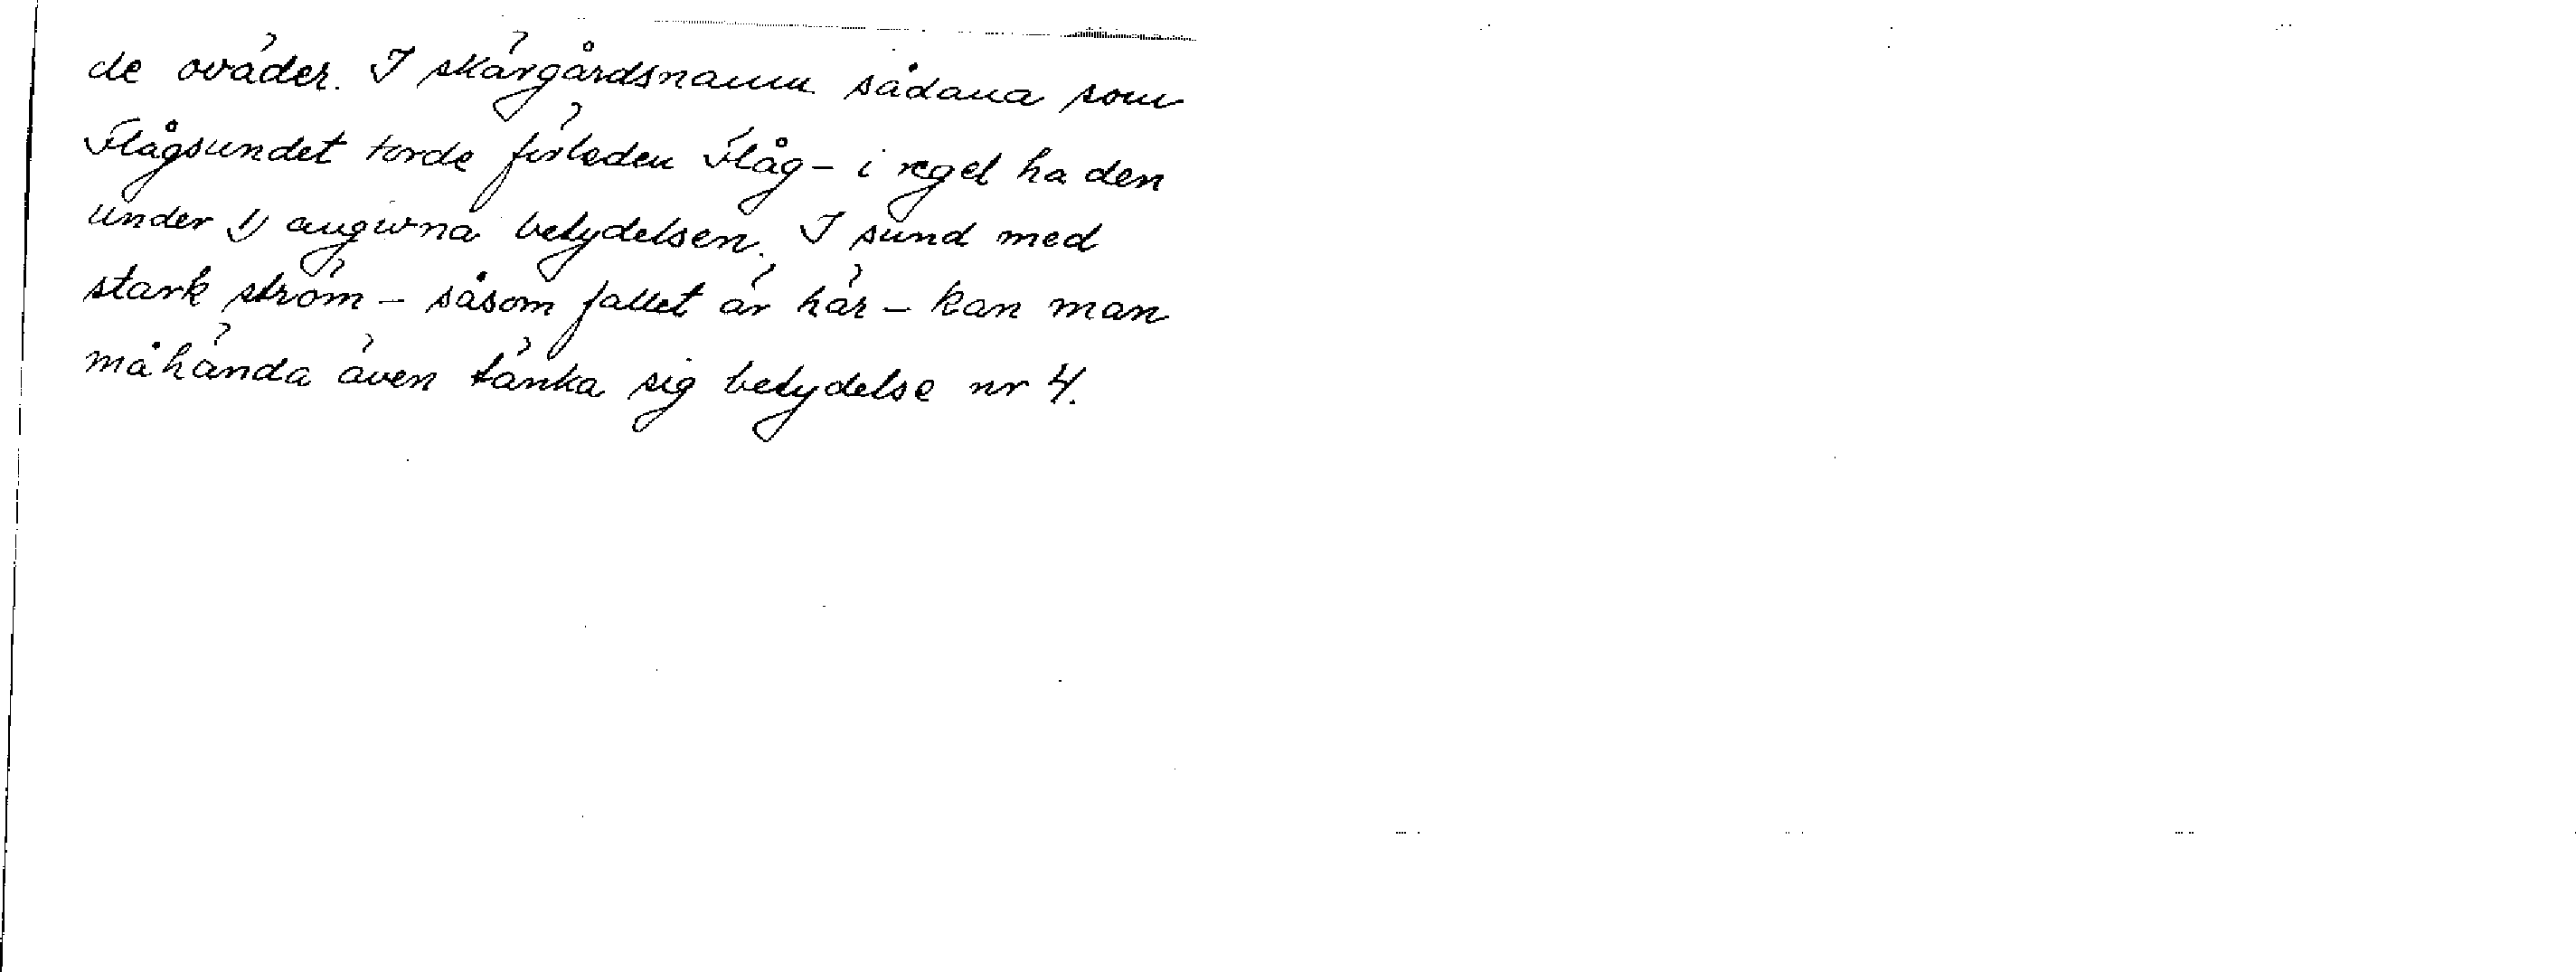 de oväder. I skärgårdsnamn sådana som
Flågsundet torde förleden Flåg- i regel ha den
under 1) angivna betydelsen. I sund med
stark ström - såsom fallet är här - kan man
måhända även tänka sig betydelse nr 4.